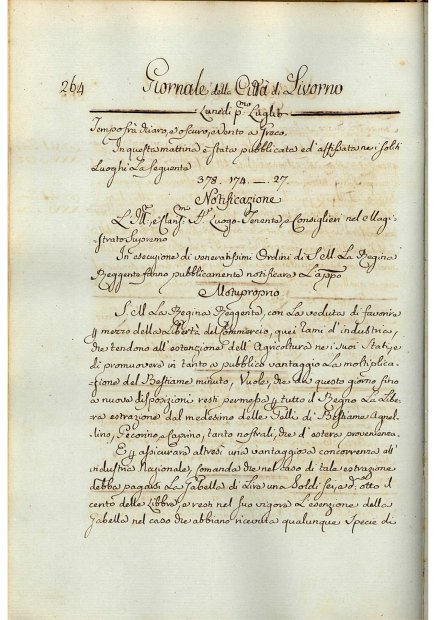 264 Giornale della Città di Livorno
Lunedì p.mo Luglio
Tempo frà chiaro, e oscuro, e vento a Greco.
In questa mattina è stata pubblicata, ed affissata nei soliti
Luoghi La seguente
378. 174. —. 27.
Notificazione
L'Ill.mo, e Clariss. Sig. Luogo-Tenente, e Consiglieri nel Magi-
strato Supremo
In esecuzione di veneratissimi Ordini di S. M. La Regina
Reggente fanno pubblicamente notificare L'appo
Motuproprio
S. M. La Regina Reggente, con La veduta di favorire
p mezzo della Libertà del Commercio, quei rami d'industria,
che tendono all'estenzione dell'Agricoltura ne i suoi Stati, e
di promuovere in tanto a pubblico vantaggio La moltiplica-
zione del Bestiame minuto, Vuole, che da questo giorno fino
a nuove disposizioni resti permessa p tutto il Regno La Libe-
ra estrazione dal medesimo delle Pelli di Bestiame Agnel-
lino, Pecorino, e Caprino, tanto nostrali, che d'estera provenienza.
E p assicurare altresì una vantaggiosa concorrenza all'
industria Nazionale, Comanda che nel caso di tale estrazione
debba pagarsi La Gabella di Lira una Soldi sei, e d. otto il
cento delle Libbre, e resti nel suo vigore L'esenzione della
Gabella nel caso che abbiano ricevuta qualunque Specie di